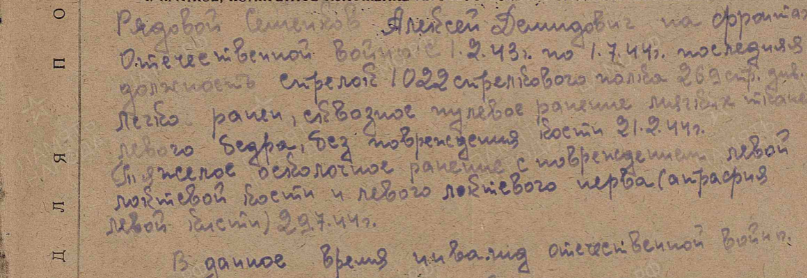 Рядовой Сетенков Алексей Демидович на фронтах
Отечественной войны с 1.2.43г. по 1.7.44г. последняя
должность стрелок 1022 стрелкового полка 269 стр. див.
легко ранен, сквозное пулевое ранение мягких ткане
левого бедра, без повреждения кости 21.2.44г.
Тяжелое осколочное ранение с повреждением левой
локтевой кости и левого локтевого нерва (атрофия
левой кисти) 29.7.44г.
В данное время инвалид отечественной войны.
Д Л Я П О